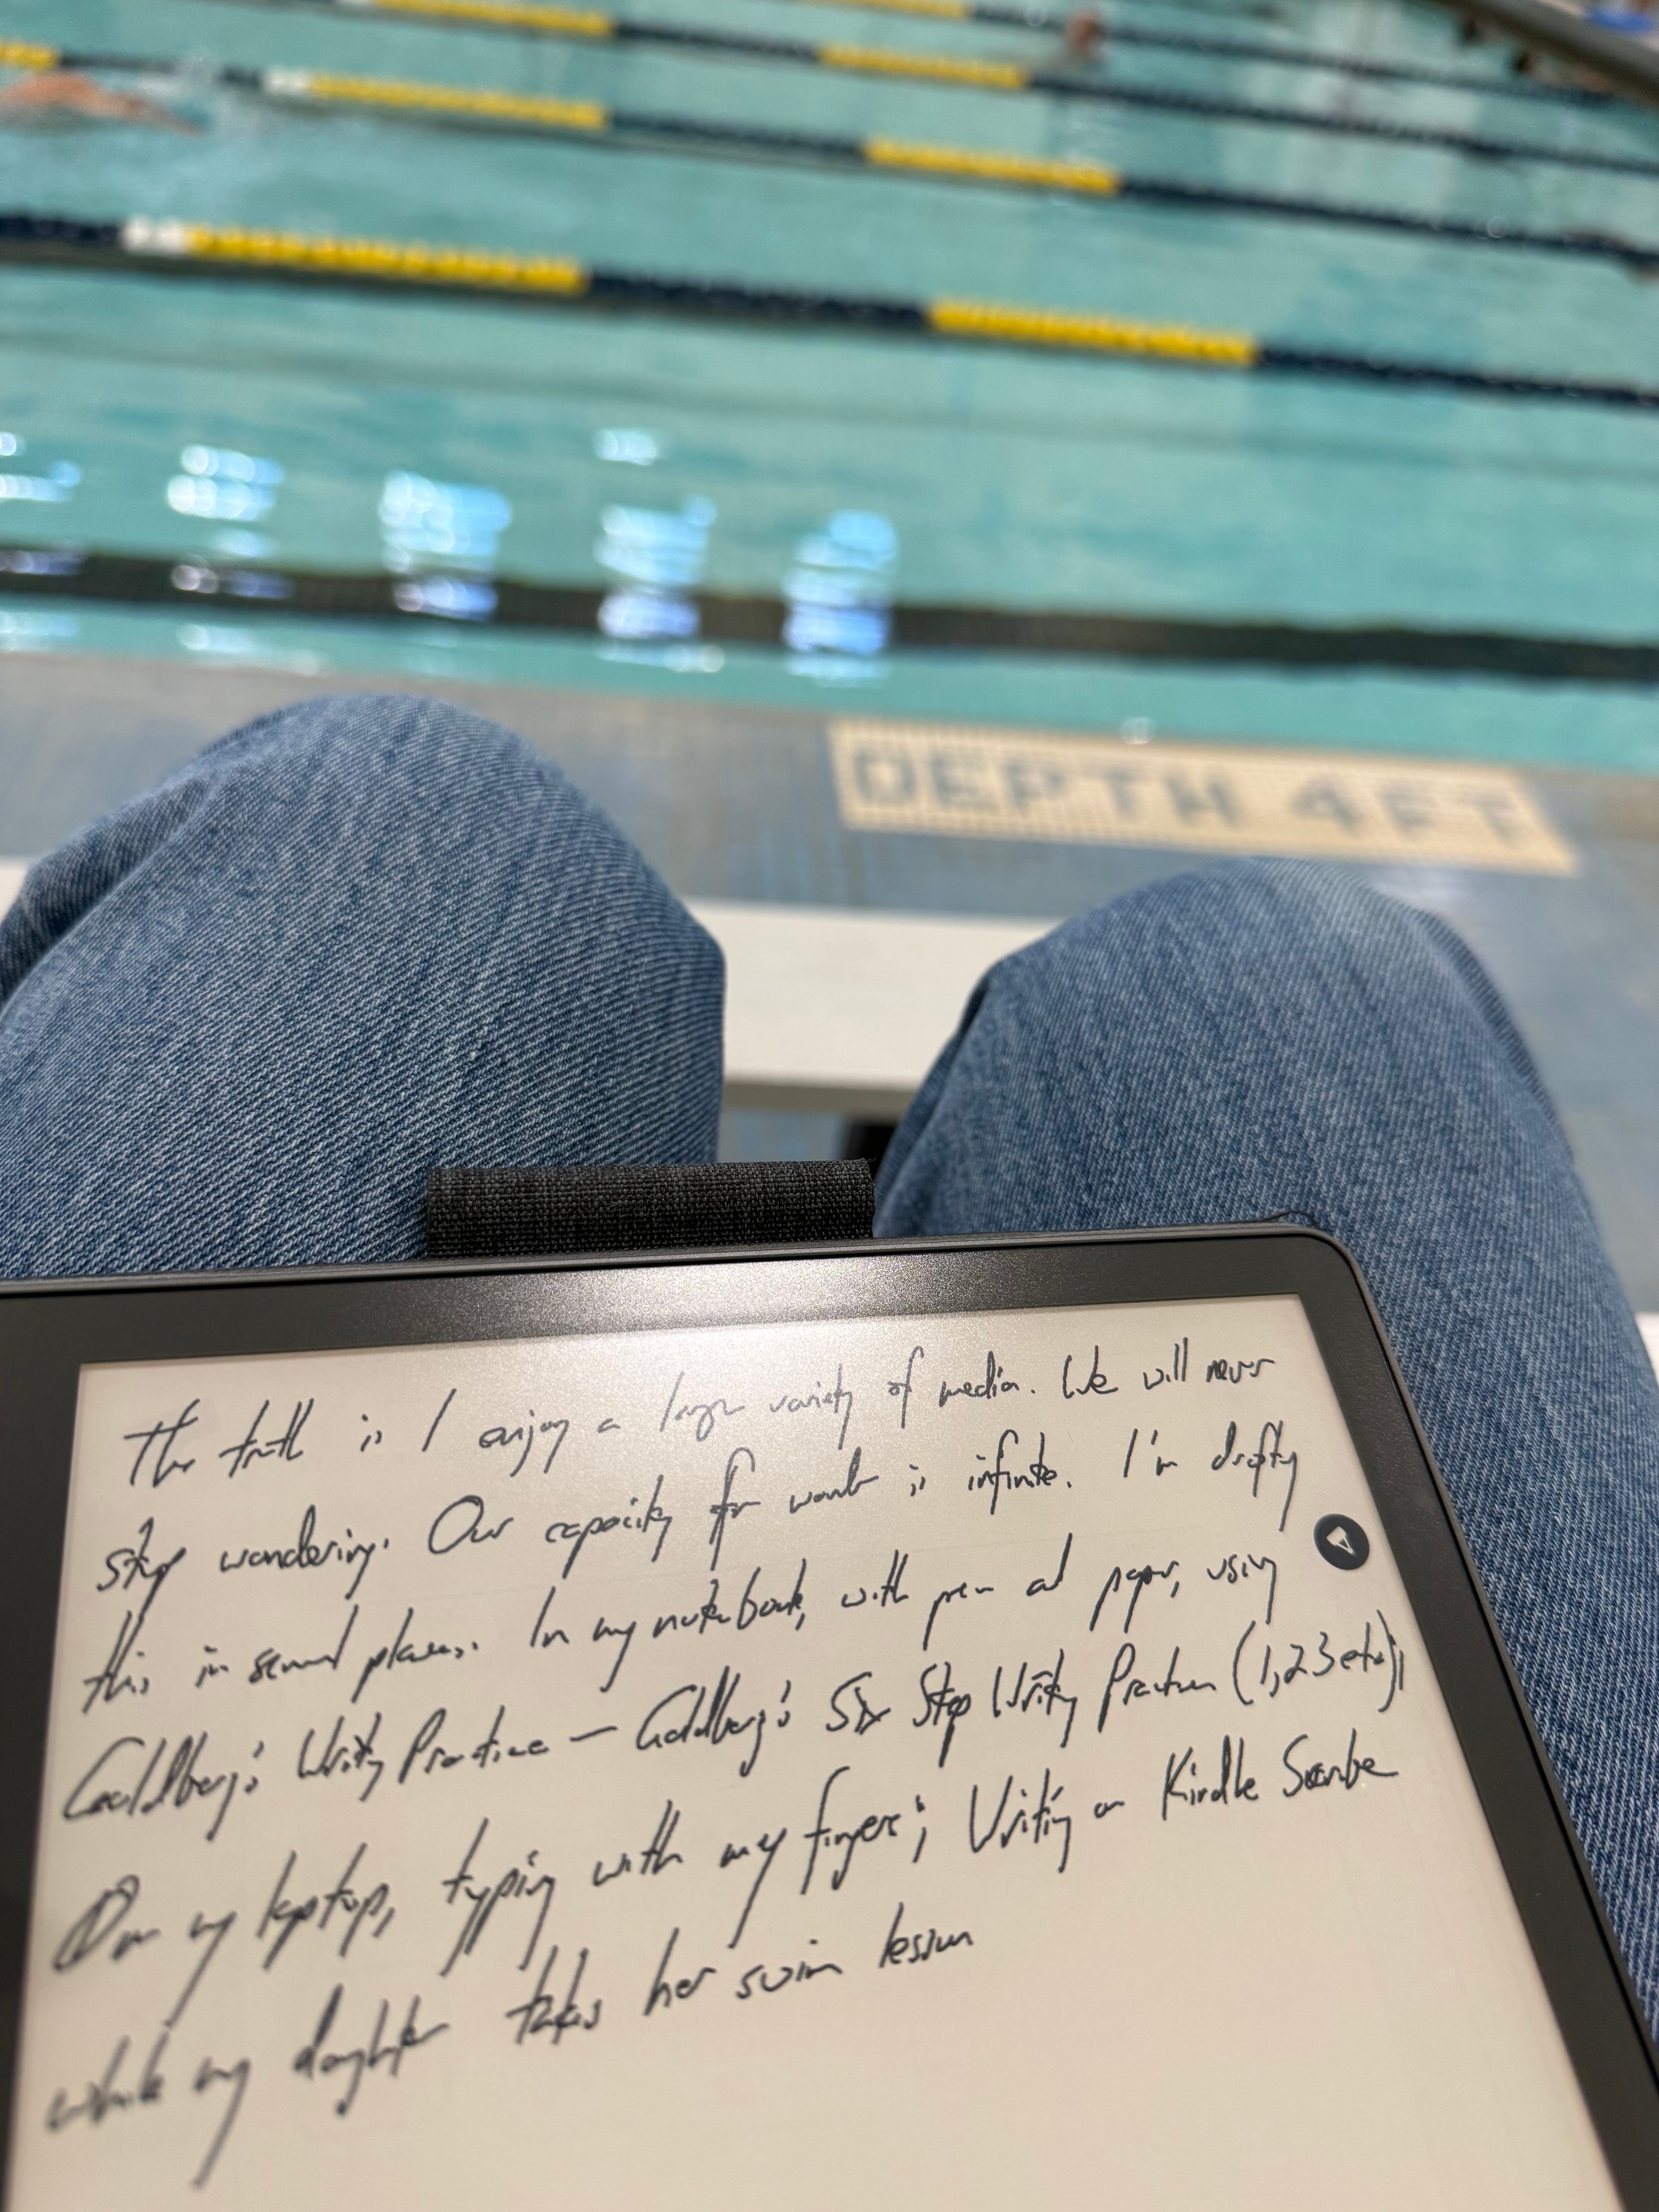 DEPTH 4FT
The truth is I enjoy a large variety of media. We will never
stop wandering. Our capacity for wonder is infinite. I'm drafting
this in several places. In my notebook, with pen and paper, using
Goldberg's Writing Practice — Goldberg's Six Step Writing Practice (1,2 3 etc);
On my laptop, typing with my fingers; Writing on Kindle Scribe
while my daughter takes her swim lesson